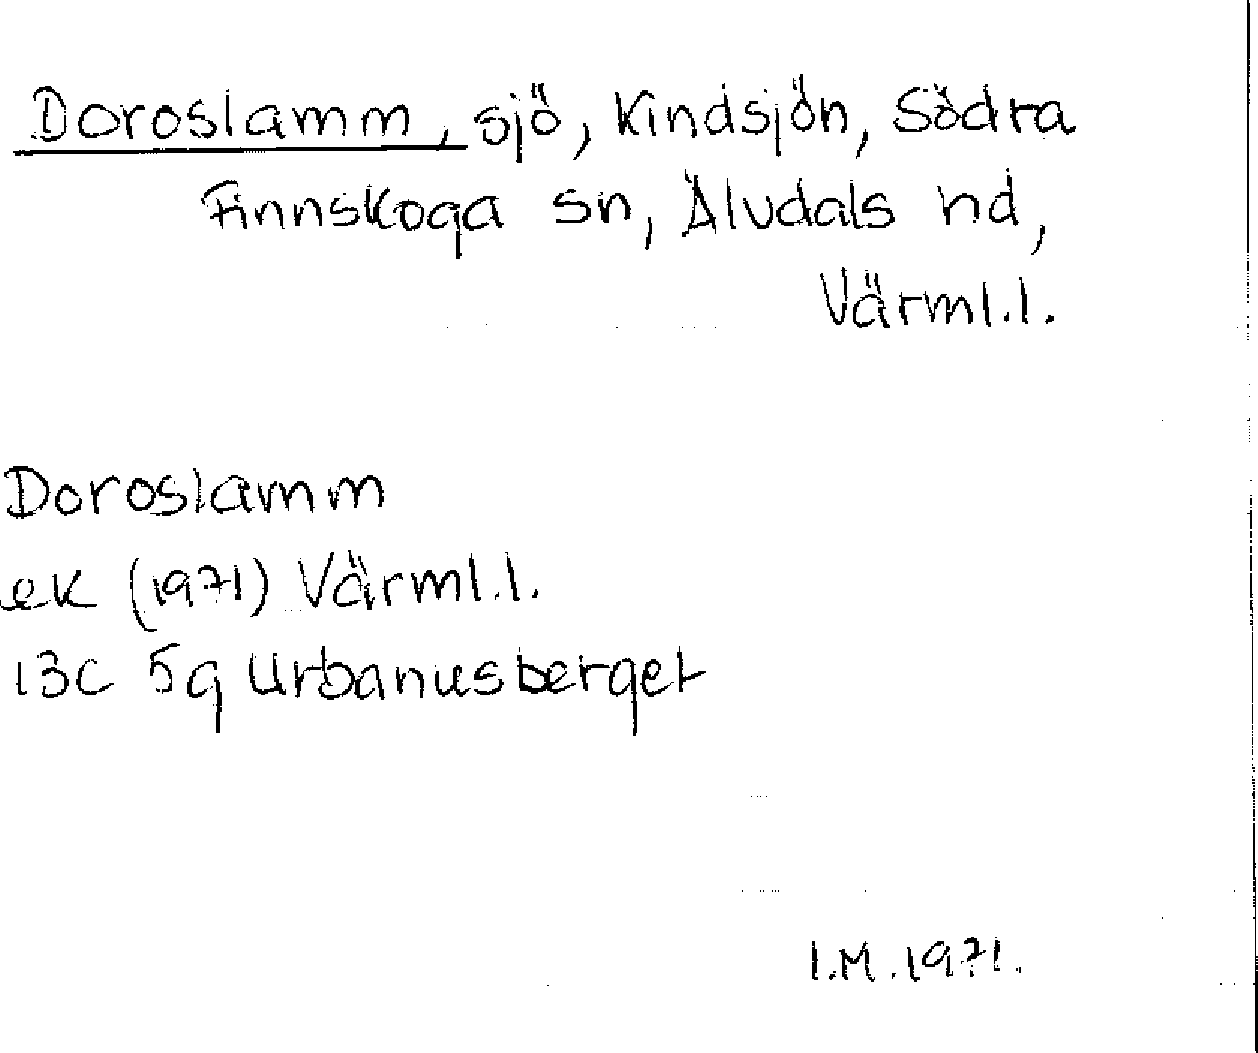 Doroslamm, sjö, Kindsjön, Södra
Finnskoga sn, Älvdals hd,
Värml.l.
Doroslamm
ek (1971) Värml.l.
13C 5g Urbanusberget
I.M.1971.